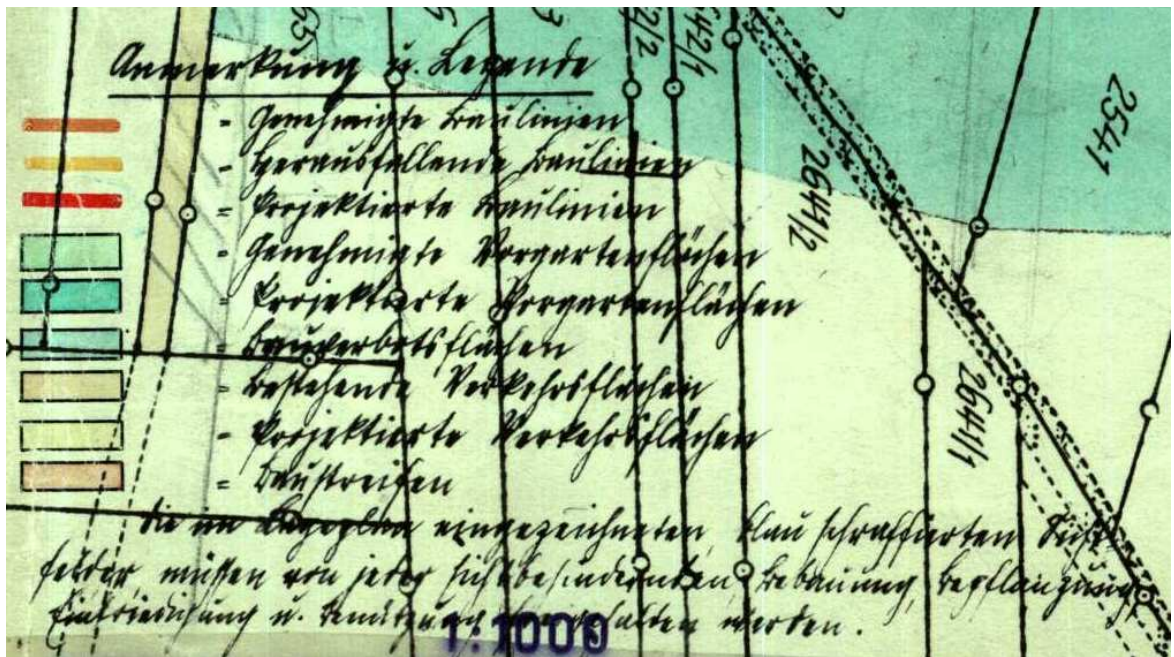 Anmerkung u. Legende
= Genehmigte Baulinien
= Herausfallende Baulinien
= Projektierte Baulinien
= Genehmigte Vorgartenflächen
= Projektierte Vorgartenflächen
= Bauverbotsflächen
= Bestehende Verkehrsflächen
= Projektierte Verkehrsflächen
= Baustreifen
Die im Lageplan eingezeichneten, blau schraffierten Sicht-
felder müssen von jeder sichtbehindernden Bebauung, Bepflanzung,
Einfriedigung u. Benützung freigehalten werden.
1:1000
2/2
42/1
2641/2
2541
2641/1